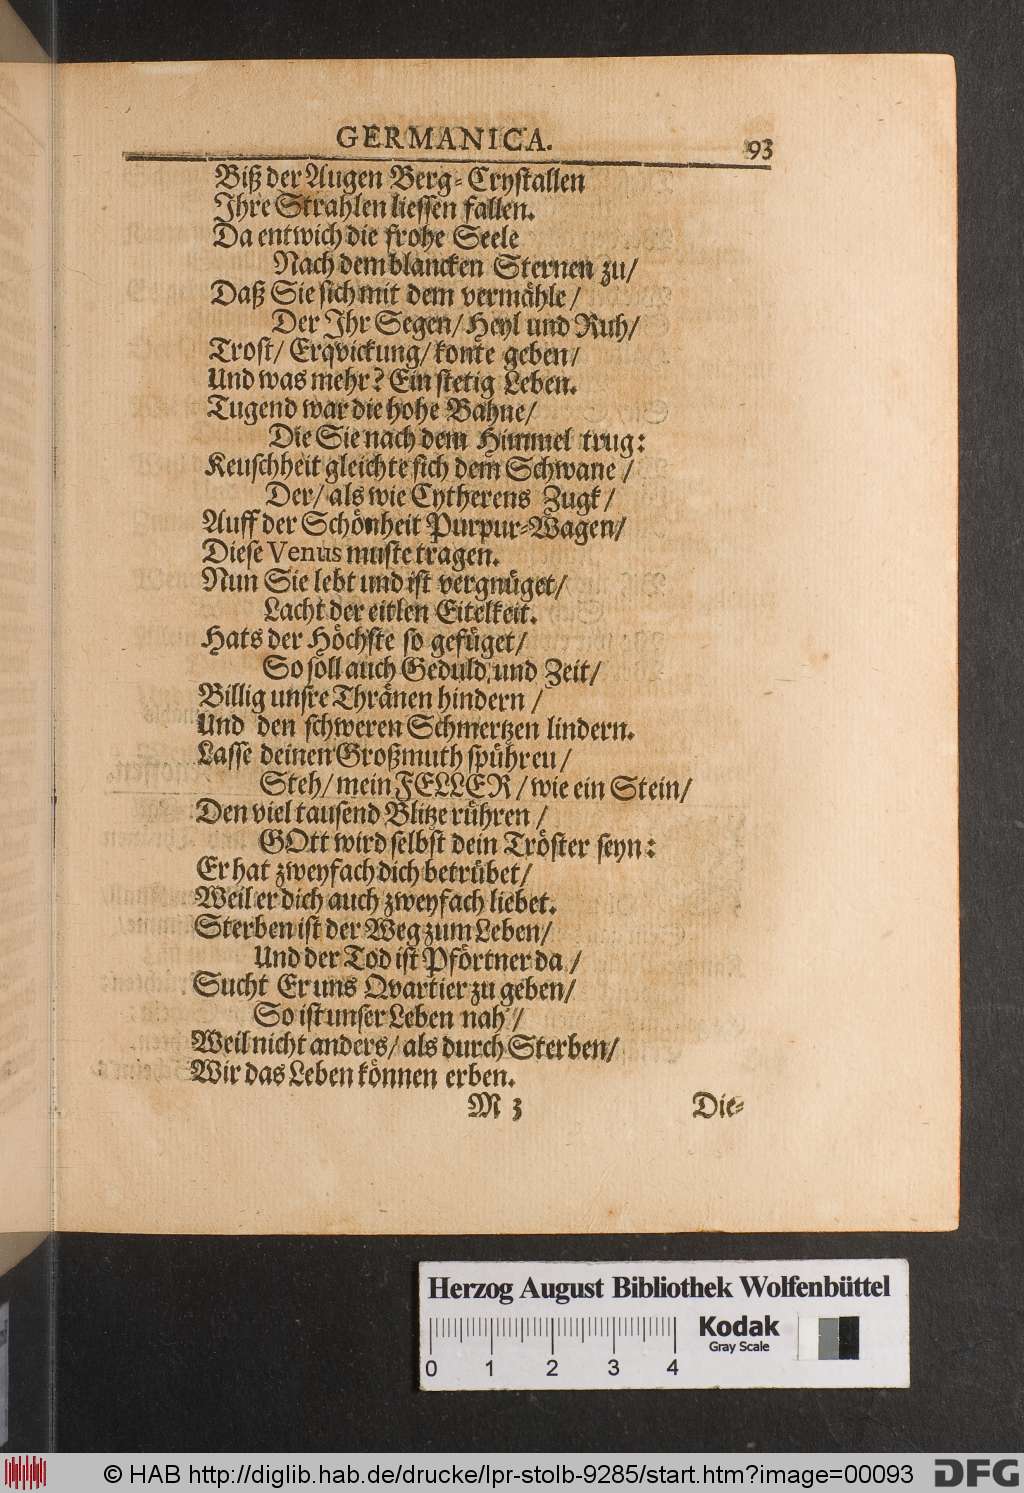 GERMANICA. 93
Biß der Augen Berg-Crystallen
Ihre Strahlen liessen fallen.
Da entwich die frohe Seele
Nach dem blancken Sternen zu/
Daß Sie sich mit dem vermähle/
Der Ihr Segen/ Heyl und Ruh/
Trost/ Erqvickung/ konte geben/
Und was mehr? Ein stetig Leben.
Tugend war die hohe Bahne/
Die Sie nach dem Himmel trug:
Keuschheit gleichte sich dem Schwane/
Der/ als wie Cytherens Zugk/
Auff der Schönheit Purpur-Wagen/
Diese Venus muste tragen.
Nun Sie lebt und ist vergnüget/
Lacht der eitlen Eitelkeit.
Hats der Höchste so gefüget/
So soll auch Geduld und Zeit/
Billig unsre Thränen hindern/
Und den schweren Schmertzen lindern.
Lasse deinen Großmuth spühreu/
Steh/ mein FELLER/ wie ein Stein/
Den viel tausend Blitze rühren/
GOtt wird selbst dein Tröster seyn:
Er hat zweyfach dich betrübet/
Weil er dich auch zweyfach liebet.
Sterben ist der Weg zum Leben/
Und der Tod ist Pförtner da/
Sucht Er uns Qvartier zu geben/
So ist unser Leben nah/
Weil nicht anders/ als durch Sterben/
Wir das Leben können erben.
M 3 Die-
Herzog August Bibliothek Wolfenbüttel
0 1 2 3 4
Kodak
Gray Scale
© HAB http://diglib.hab.de/drucke/lpr-stolb-9285/start.htm?image=00093 DFG